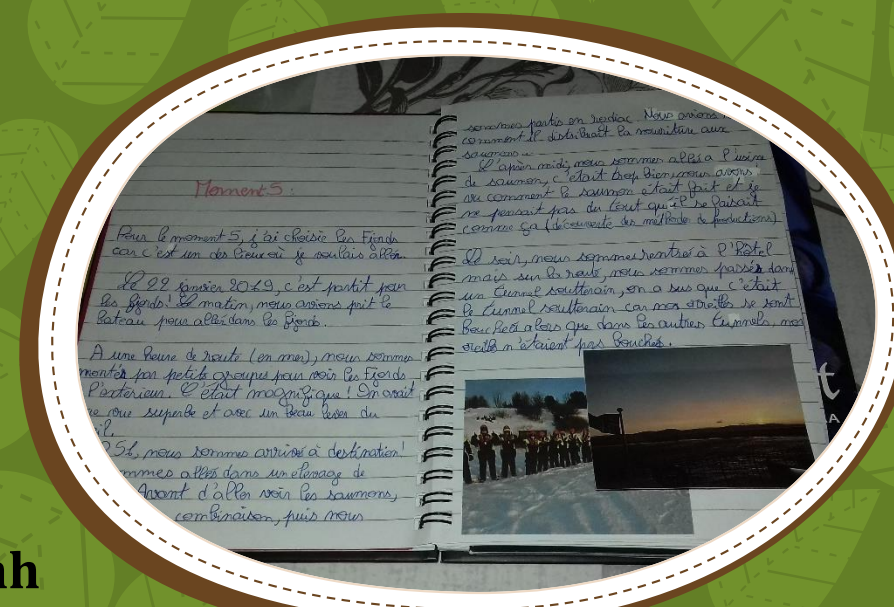 Moment 5:
Pour le moment 5, j'ai choisie les Fjords
car c'est un des lieux où je voulais aller.
Le 22 janvier 2019, c'est partit pour
les fjords! Le matin, nous avions prit le
bateau pour aller dans les fjords.
A une heure de route (en mer), nous sommes
montés par petits groupes pour voir les Fjords
l'extérieur. C'était magnifique! On avait
ne vue superbe et avec un beau lever du
il.
nous sommes arrivés à destination!
mmes allés dans un élevage de
Avant d'aller voir les saumons,
combinaison, puis nous
sommes partis en zodiac. Nous avions
comment il distribuait la nourriture aux
saumons.
L'après midi, nous sommes allés a l'usine
de saumon, c'était trop bien, nous avons
vu comment le saumon était fait et je
ne pensait pas du tout qu'il se faisait
comme ça (découverte des méthodes de productions)
Le soir, nous sommes rentrés à l'hôtel
mais sur la route, nous sommes passés dans
un tunnel soutterain, on a sus que c'était
le tunnel soutterain car nos oreilles se sont
bouchés alors que dans les autres tunnels, nos
oreilles n'étaient pas bouchés.
t
A
ah